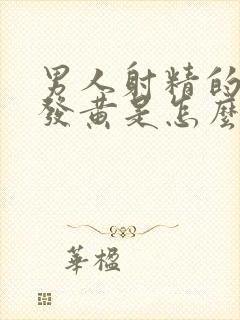 男人射精的
發黄是怎麼
華楹